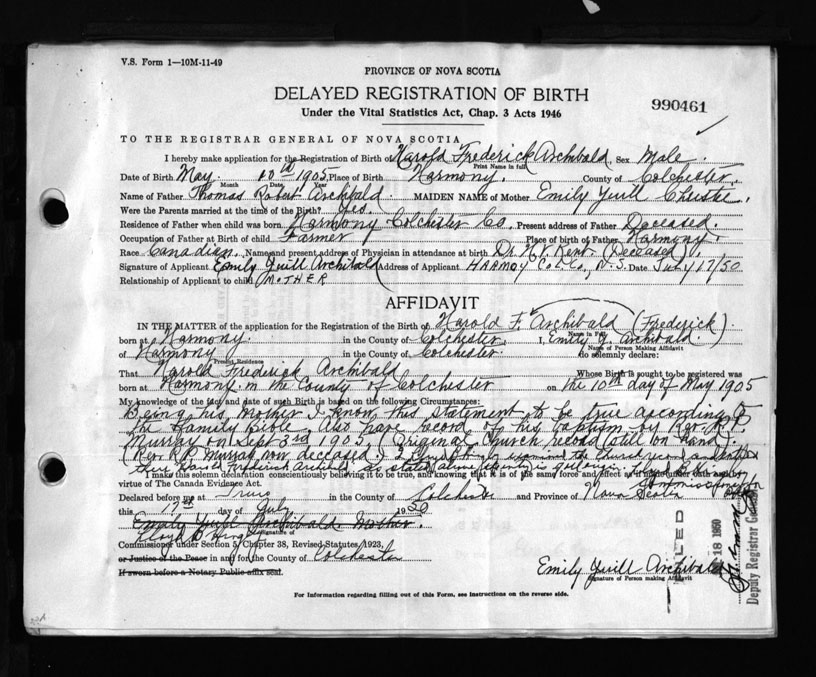 V.S. Form 1—10M-11-49
PROVINCE OF NOVA SCOTIA
DELAYED REGISTRATION OF BIRTH
990461
Under the Vital Statistics Act, Chap. 3 Acts 1946
TO THE REGISTRAR GENERAL OF NOVA SCOTIA
I hereby make application for the Registration of Birth of Harold Frederick Archibald Sex Male.
Print Name in full
Date of Birth May 10th 1905 Place of Birth Harmony. County of Colchester.
Month Date Year
Name of Father Thomas Robert Archibald. MAIDEN NAME of Mother Emily Yuill Christie.
Were the Parents married at the time of the Birth? Yes.
Residence of Father when child was born Harmony Colchester Co. Present address of Father Deceased.
Occupation of Father at Birth of child Farmer Place of Birth of Father Harmony.
Race Canadian. Name and present address of Physician in attendance at birth Dr. H.V. Kent. (Deceased).
Signature of Applicant Emily Yuill Archibald Address of Applicant HARMONY Col. Co., N.S. Date July 17/50
Relationship of Applicant to child MOTHER
AFFIDAVIT
IN THE MATTER of the application for the Registration of the Birth of Harold F. Archibald (Frederick).
Name in Full
born at Harmony. in the County of Colchester. I, Emily Y. Archibald
Name of Person Making Affidavit
of Harmony in the County of Colchester. do solemnly declare:
Present Residence
That Harold Frederick Archibald Whose Birth is sought to be registered was
born at Harmony in the County of Colchester on the 10th day of May 1905
My knowledge of the fact and date of such Birth is based on the following Circumstances:
Being his mother I know this statement to be true according to
the Family Bible. Also have record of his baptism by Rev. R.P.
Murray on Sept 3rd 1905. (Original Church record still on hand).
(Rev R.P. Murray now deceased).
I make this solemn declaration conscientiously believing it to be true, and knowing that it is of the same force and effect as if made under oath and by
virtue of The Canada Evidence Act.
Declared before me at Truro in the County of Colchester and Province of Nova Scotia
this 17th day of July 1950
Emily Yuill Archibald. Mother.
Signature of
Commissioner under Section 5, Chapter 38, Revised Statutes 1923,
or Justice of the Peace in and for the County of Colchester
If sworn before a Notary Public affix seal.
Emily Yuill Archibald
Signature of Person making Affidavit
18 1950
Deputy Registrar General
For Information regarding filling out of this Form, see instructions on the reverse side.